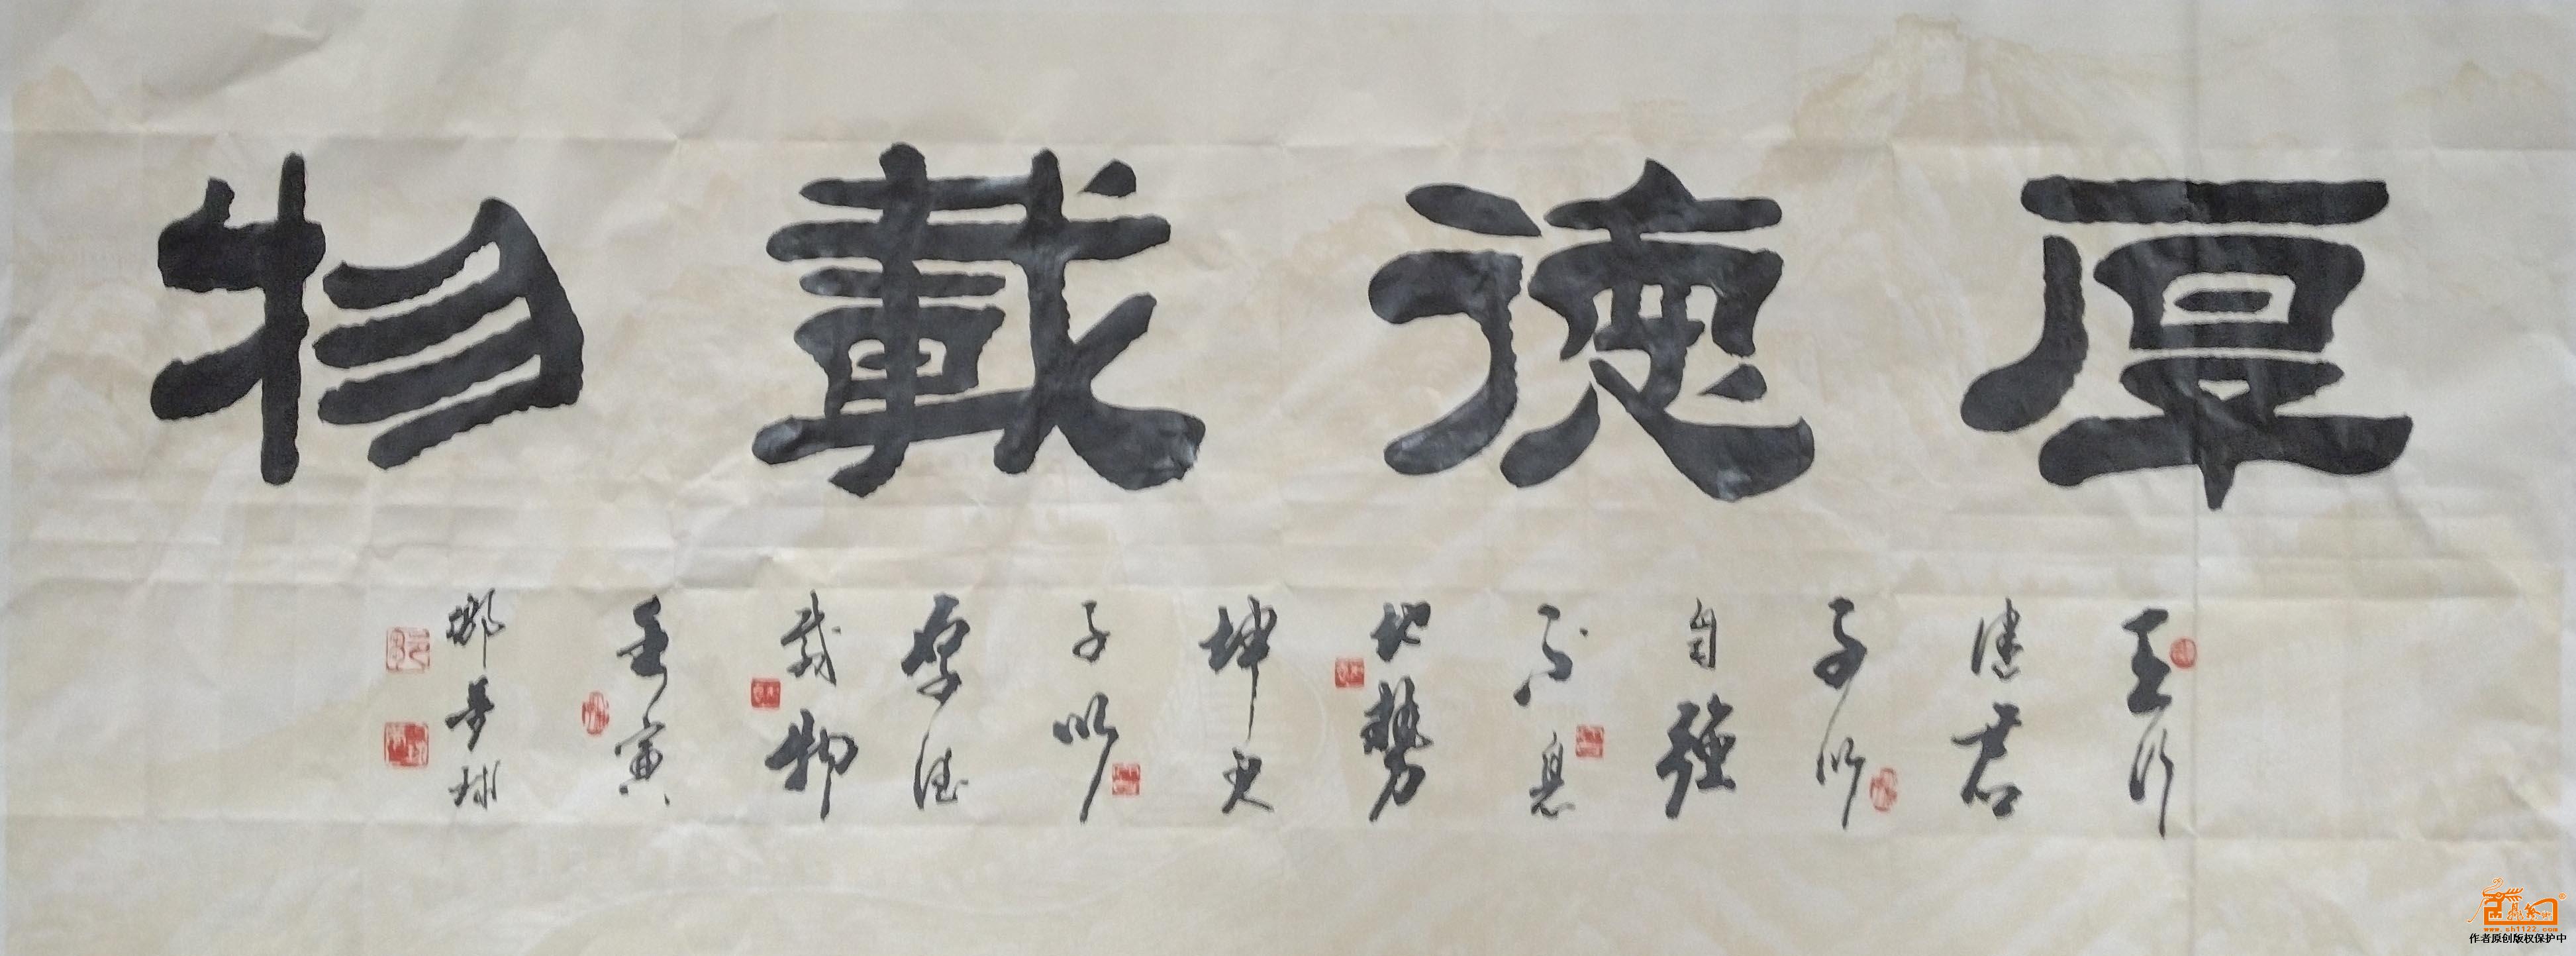 厚德載物
天行
健君
子以
自強
不息
地勢
坤君
子以
厚德
載物
壬寅
www.ch1122.com
作者原创版权保护中